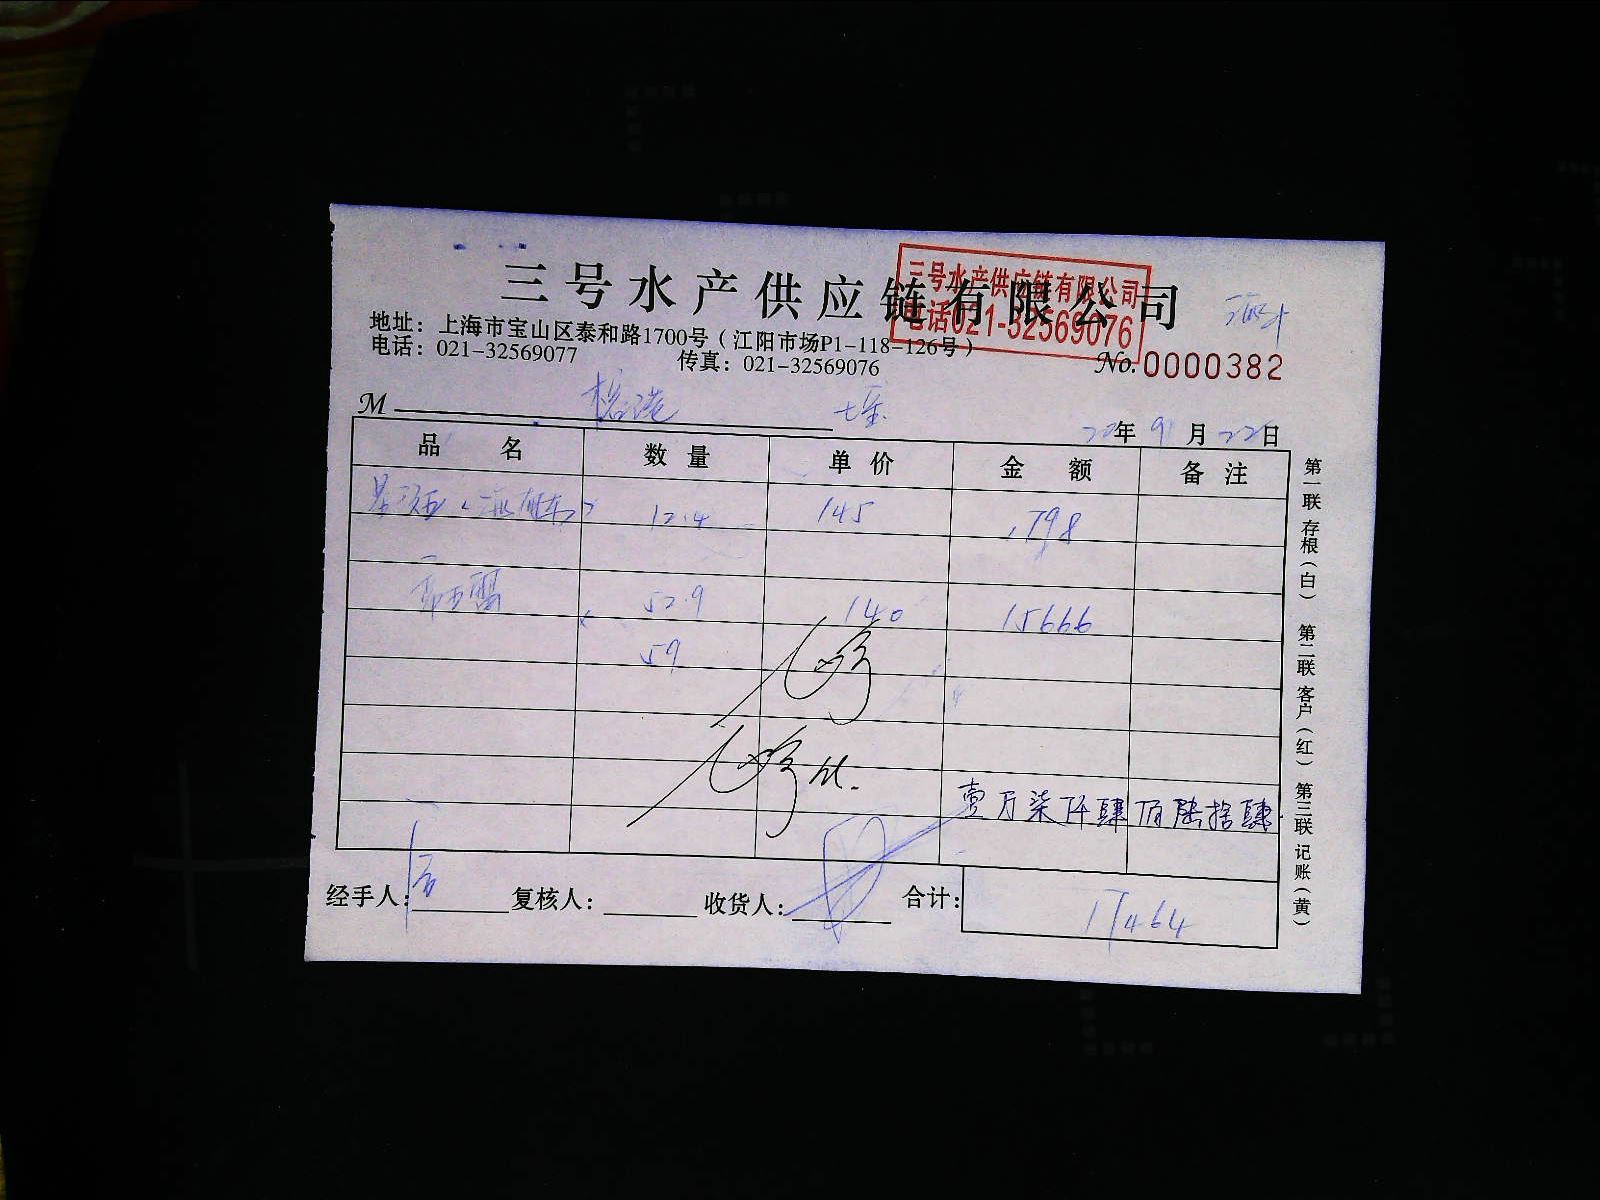 三号水产供应链有限公司
三号水产供应链有限公司
电话021-32569076
地址：上海市宝山区泰和路1700号（江阳市场P1-118-126号）
电话：021-32569077 传真：021-32569076
No.0000382
M
20年 9月22日
品 名 数 量 单 价 金 额 备 注
12.4 145 1798
52.9 140 15666
59
壹万柒仟肆佰陆拾肆
经手人： 复核人： 收货人： 合计： 17464
第一联 存根（白） 第二联 客户（红） 第三联 记账（黄）